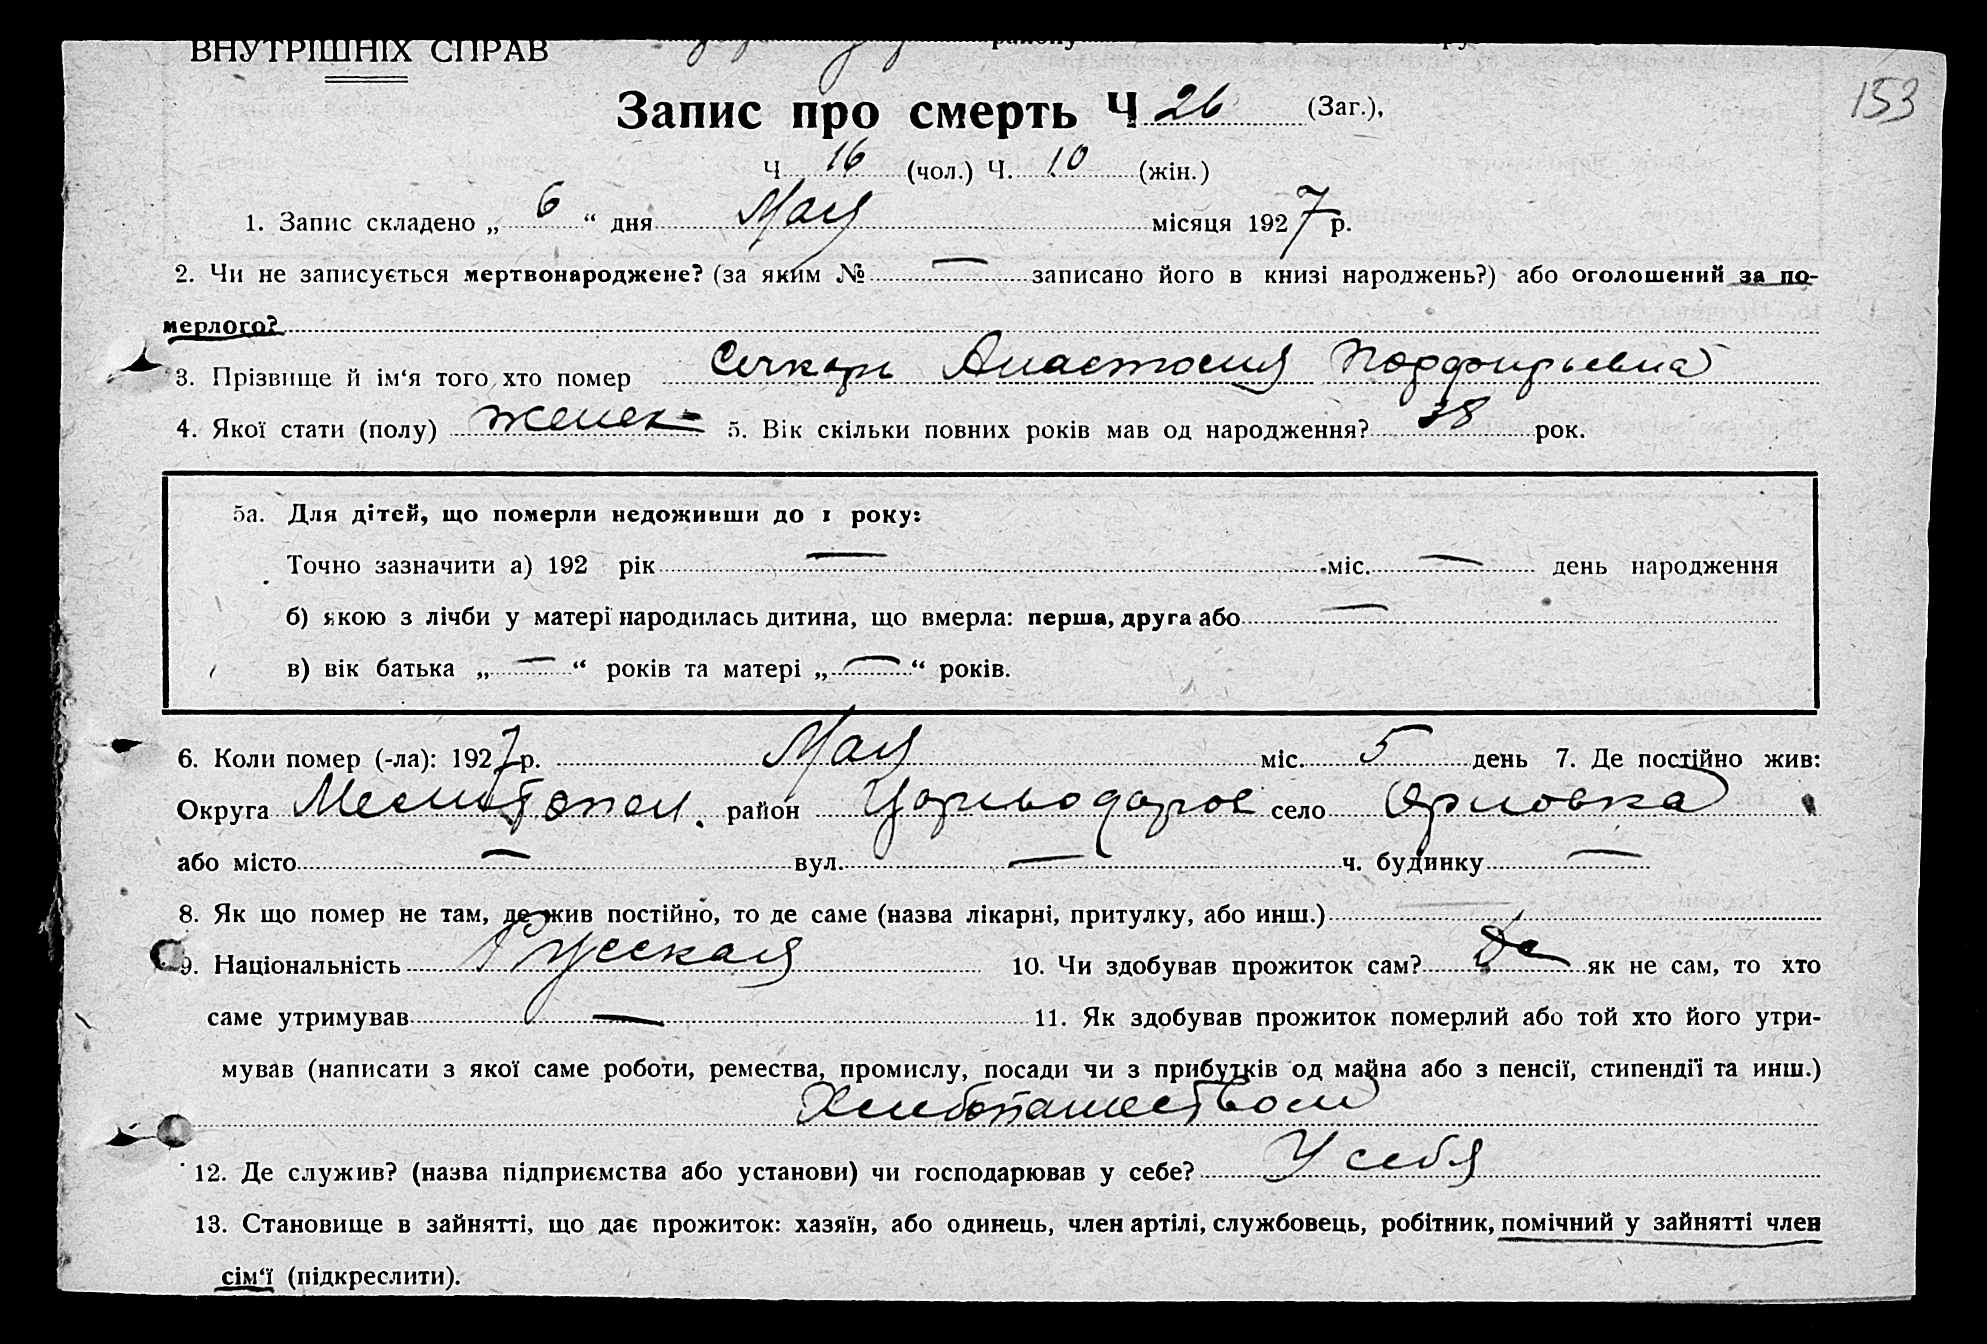 ВНУТРІШНІХ СПРАВ
153
Запис про смерть Ч 26 (Заг.),
Ч 16 (чол.) Ч. 10 (жін.)
1. Запис складено „ 6 “ дня Мая місяця 1927 р.
2. Чи не записується мертвонароджене? (за яким № — записано його в книзі народжень?) або оголошений за по-
мерлого?
3. Прізвище й ім‘я того, хто помер Сечкарь Анастосия Порфирьевна
4. Якої стати (полу) женск 5. Вік скільки повних років мав од народження? 38 рок.
5а. Для дітей, що померли недоживши до 1 року:
Точно зазначити а) 192 рік — міс. — день народження
б) якою з лічби у матері народилась дитина, що вмерла: перша, друга або —
в) вік батька „ — “ років та матері „ — “ років.
6. Коли помер (-ла): 1927 р. Мая міс. 5 день 7. Де постійно жив:
Округа район село Орловка
або місто — вул. — ч. будинку —
8. Як що помер не там, де жив постійно, то де саме (назва лікарні, притулку, або инш.)
9. Національність Русская 10. Чи здобував прожиток сам? Да як не сам, то хто
саме утримував — 11. Як здобував прожиток померлий або той хто його утри-
мував (написати з якої саме роботи, ремества, промислу, посади чи з прибутків од майна або з пенсії, стипендії та инш.)
Хлебопашеством
12. Де служив? (назва підприємства або установи) чи господарював у себе? У себя
13. Становище в зайнятті, що дає прожиток: хазяїн, або одинець, член артілі, службовець, робітник, помічний у зайнятті член
сім‘ї (підкреслити).